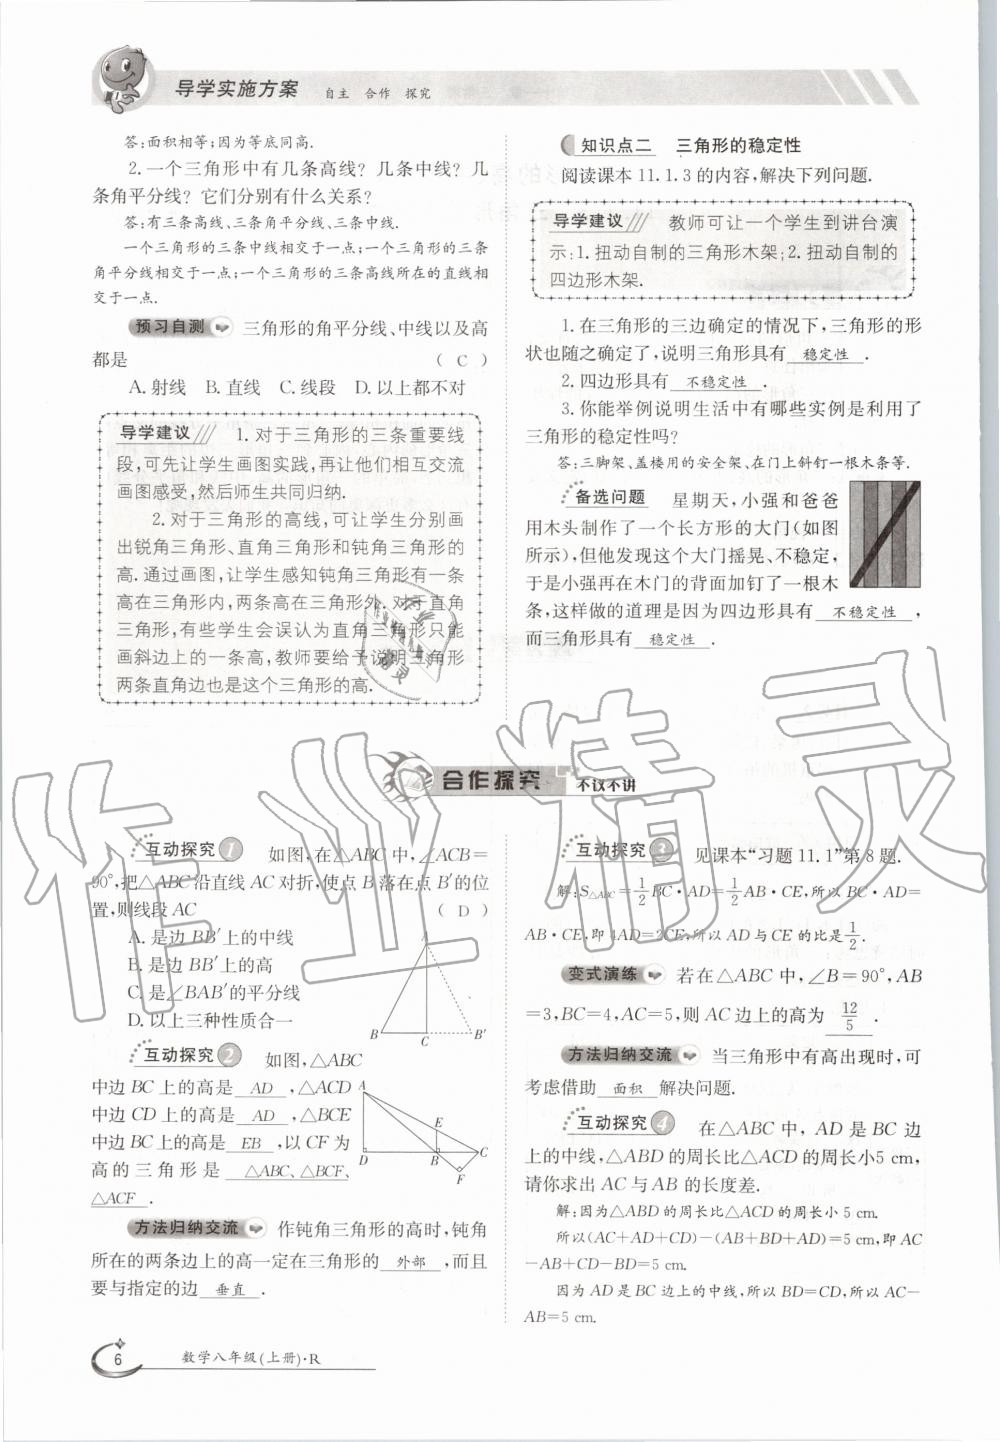 导学实施方案 自主 合作 探究
答:面积相等;因为等底同高.
2.一个三角形中有几条高线？几条中线？几
条角平分线？它们分别有什么关系？
答:有三条高线、三条角平分线、三条中线.
一个三角形的三条中线相交于一点;一个三角形的三条
角平分线相交于一点;一个三角形的三条高线所在的直线相
交于一点.
预习自测 三角形的角平分线、中线以及高
都是 ( C )
A.射线 B.直线 C.线段 D.以上都不对
导学建议 1.对于三角形的三条重要线
段,可先让学生画图实践,再让他们相互交流
画图感受,然后师生共同归纳.
2.对于三角形的高线,可让学生分别画
出锐角三角形、直角三角形和钝角三角形的
高.通过画图,让学生感知钝角三角形有一条
高在三角形内,两条高在三角形外.对于直角
三角形,有些学生会误认为直角三角形只能
画斜边上的一条高,教师要给予说明三角形
两条直角边也是这个三角形的高.
知识点二 三角形的稳定性
阅读课本 11.1.3 的内容,解决下列问题.
导学建议 教师可让一个学生到讲台演
示:1.扭动自制的三角形木架;2.扭动自制的
四边形木架.
1.在三角形的三边确定的情况下,三角形的形
状也随之确定了,说明三角形具有 稳定性 .
2.四边形具有 不稳定性 .
3.你能举例说明生活中有哪些实例是利用了
三角形的稳定性吗?
答:三脚架、盖楼用的安全架、在门上斜钉一根木条等.
备选问题 星期天,小强和爸爸
用木头制作了一个长方形的大门(如图
所示),但他发现这个大门摇晃、不稳定,
于是小强再在木门的背面加钉了一根木
条,这样做的道理是因为四边形具有 不稳定性 ,
而三角形具有 稳定性 .
合作探究 不议不讲
互动探究 1 如图,在△ABC 中,∠ACB=
90°,把△ABC 沿直线 AC 对折,使点 B 落在点 B′的位
置,则线段 AC ( D )
A.是边 BB′上的中线
B.是边 BB′上的高
C.是∠BAB′的平分线
D.以上三种性质合一
A
B C B′
互动探究 2 如图,△ABC
中边 BC 上的高是 AD ,△ACD
中边 CD 上的高是 AD ,△BCE
中边 BC 上的高是 EB ,以 CF 为
高的三角形是 △ABC、△BCF、
△ACF .
A
E
D B C
F
方法归纳交流 作钝角三角形的高时,钝角
所在的两条边上的高一定在三角形的 外部 ,而且
要与指定的边 垂直 .
互动探究 3 见课本“习题 11.1”第 8 题.
解:S△ABC=1/2BC·AD=1/2AB·CE,所以 BC·AD=
AB·CE,即 4AD=2CE,所以 AD 与 CE 的比是1/2.
变式演练 若在△ABC 中,∠B=90°,AB
=3,BC=4,AC=5,则 AC 边上的高为 12/5 .
方法归纳交流 当三角形中有高出现时,可
考虑借助 面积 解决问题.
互动探究 4 在△ABC 中, AD 是 BC 边
上的中线,△ABD 的周长比△ACD 的周长小5 cm,
请你求出 AC 与 AB 的长度差.
解:因为△ABD 的周长比△ACD 的周长小 5 cm.
所以(AC+AD+CD)-(AB+BD+AD)=5 cm,即 AC
-AB+CD-BD=5 cm.
因为 AD 是 BC 边上的中线,所以 BD=CD,所以 AC-
AB=5 cm.
6 数学八年级(上册)·R
作业精灵